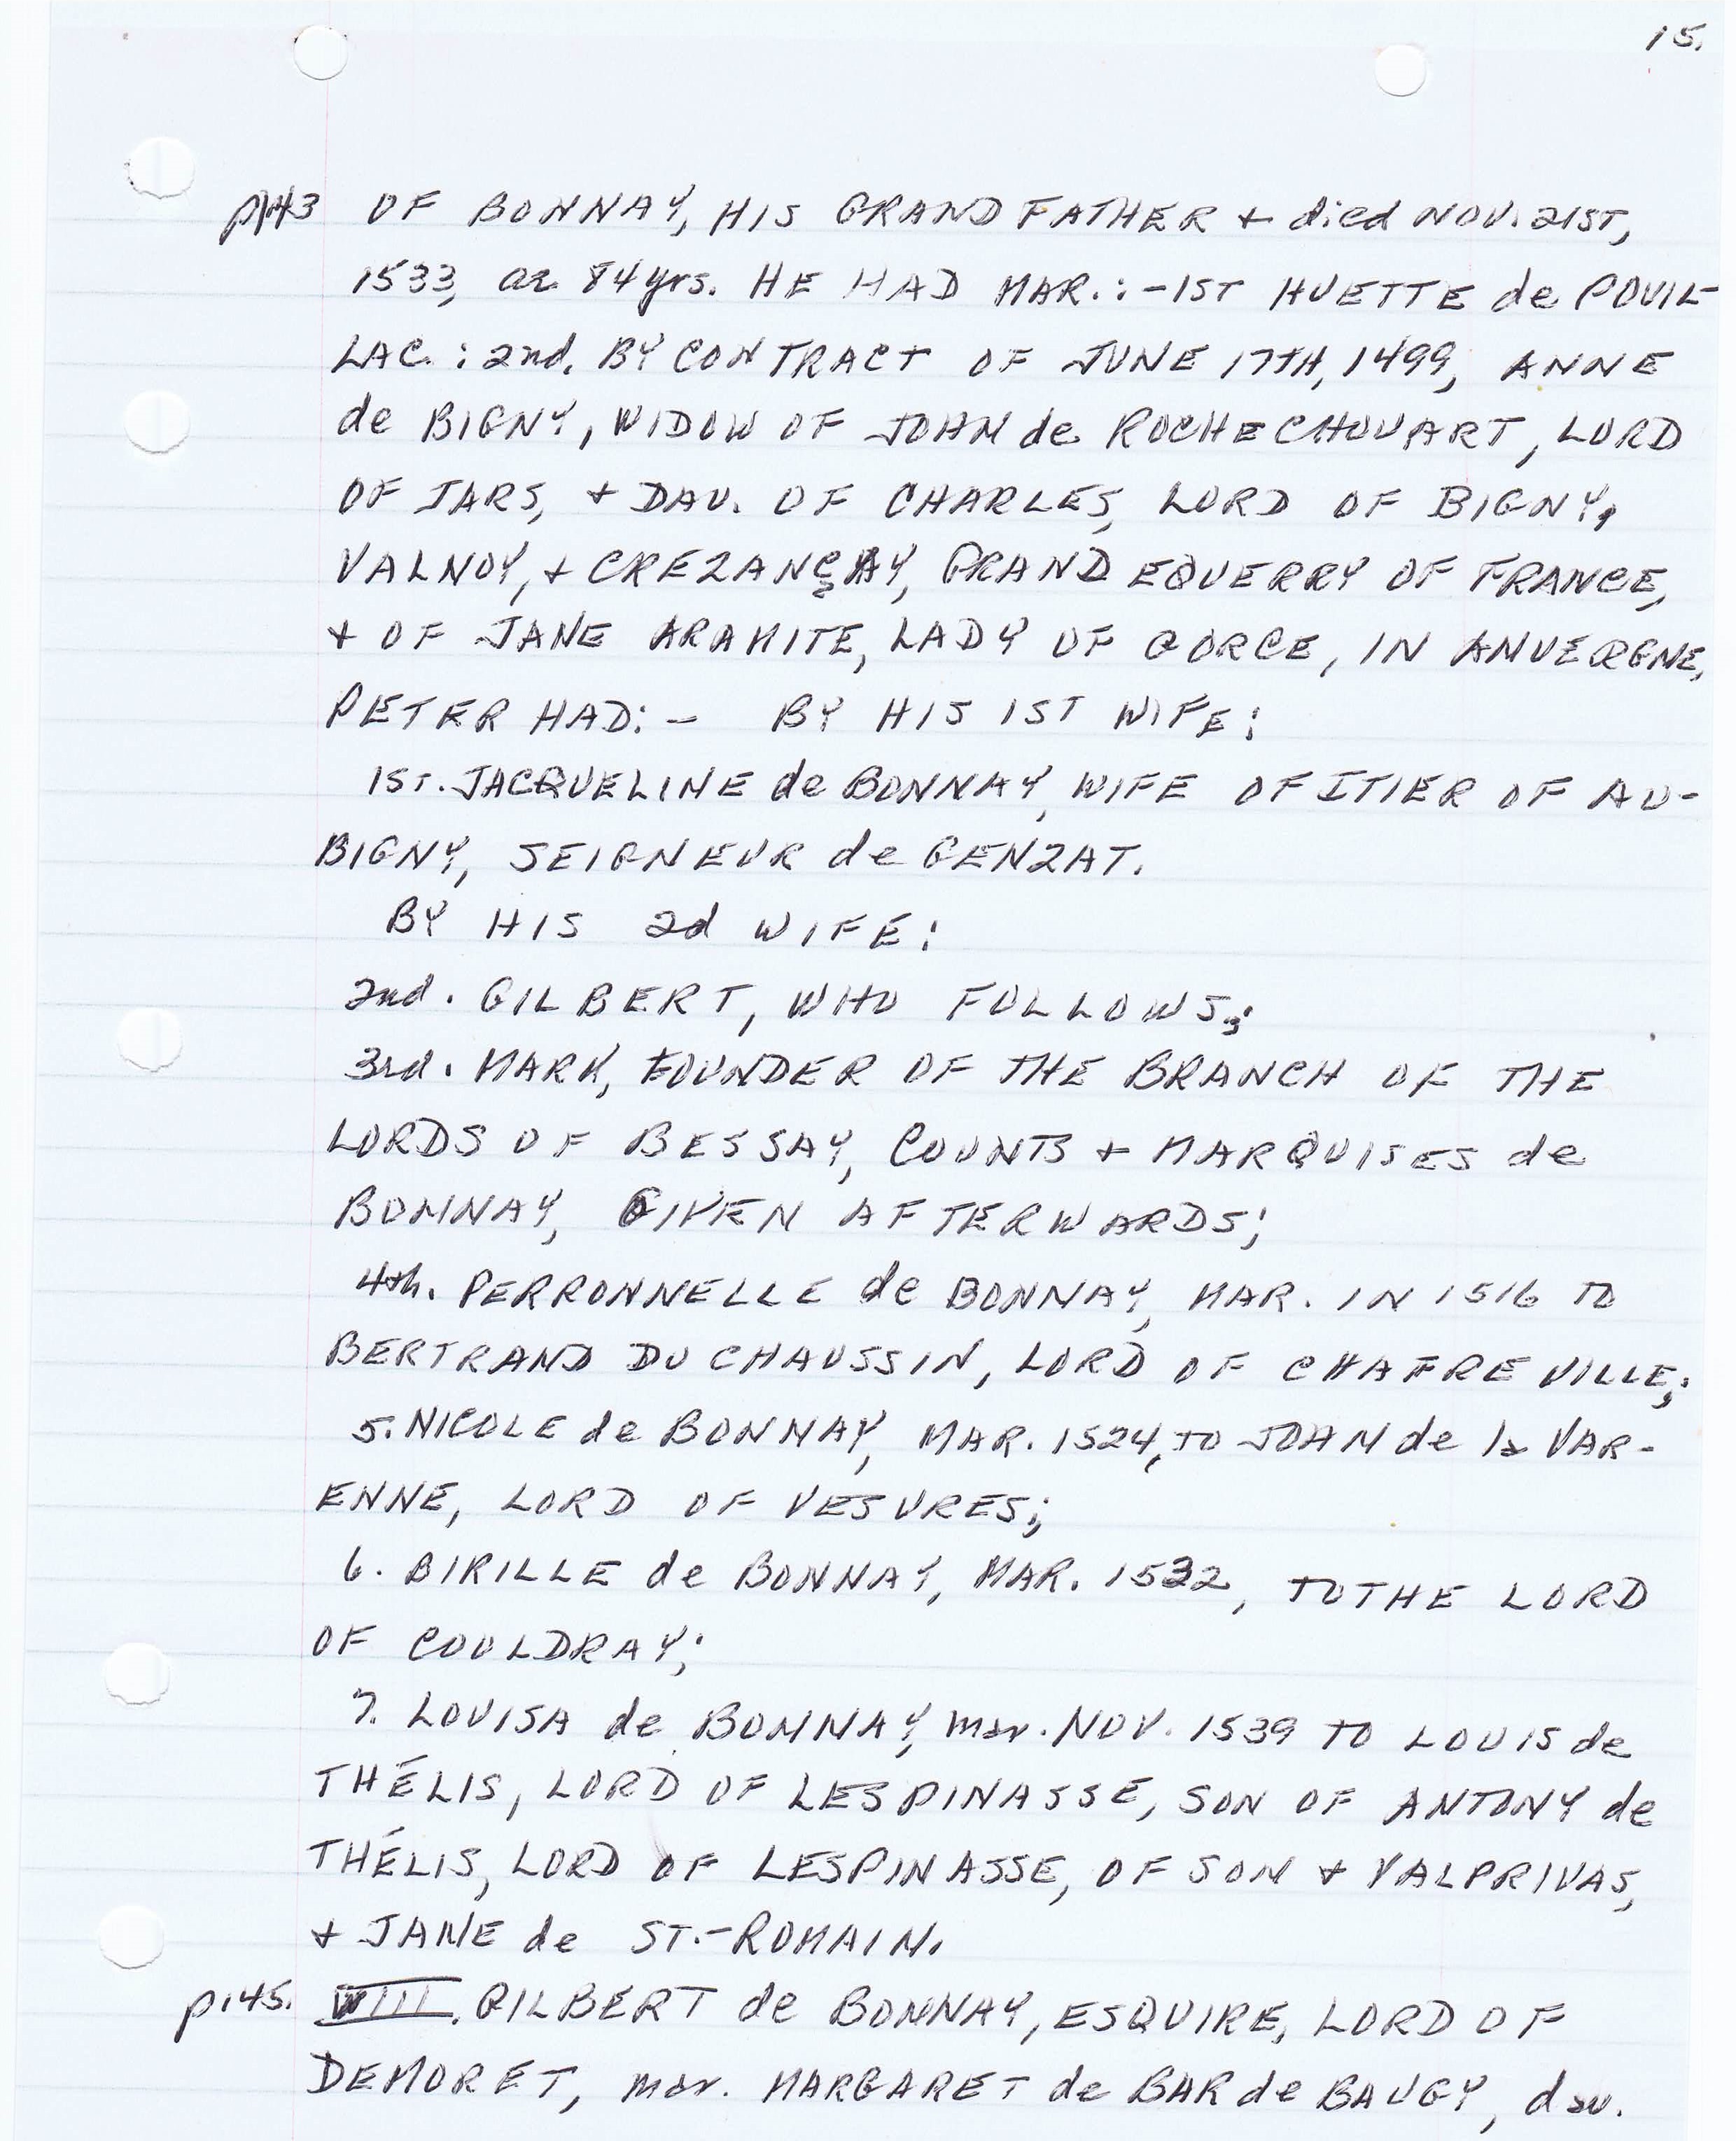 15.
p143 OF BONNAY, HIS GRANDFATHER + died NOV. 21ST,
1533, ae. 84 yrs. HE HAD MAR.: - 1ST HUETTE de POUIL-
LAC : 2nd. BY CONTRACT OF JUNE 17TH, 1499, ANNE
de BIGNY, WIDOW OF JOHN de ROCHECHOUART, LORD
OF JARS, + DAU. OF CHARLES, LORD OF BIGNY,
VALNOY, + CREZANÇAY, GRAND EQUERRY OF FRANCE,
+ OF JANE ARAMITE, LADY OF GORCE, IN ANVERGNE,
PETER HAD: - BY HIS 1ST WIFE:
1ST. JACQUELINE de BONNAY, WIFE OF ITIER OF AU-
BIGNY, SEIGNEUR de GENZAT.
BY HIS 2d WIFE:
2nd. GILBERT, WHO FOLLOWS;
3rd. MARK, FOUNDER OF THE BRANCH OF THE
LORDS OF BESSAY, COUNTS + MARQUISES de
BONNAY, GIVEN AFTERWARDS;
4th. PERRONNELLE de BONNAY, MAR. IN 1516 TO
BERTRAND DU CHAUSSIN, LORD OF CHAFREVILLE;
5. NICOLE de BONNAY, MAR. 1524, TO JOHN de la VAR-
ENNE, LORD OF VESURES;
6. BIRILLE de BONNAY, MAR. 1532, TO THE LORD
OF COULDRAY;
7. LOUISA de BONNAY, mar. NOV. 1539 TO LOUIS de
THÉLIS, LORD OF LESPINASSE, SON OF ANTONY de
THÉLIS, LORD OF LESPINASSE, OF SON + VALPRIVAS,
+ JANE de ST.-ROMAIN.
p.145. VIII. GILBERT de BONNAY, ESQUIRE, LORD OF
DEMORET, mar. MARGARET de BAR de BAUGY, dau.